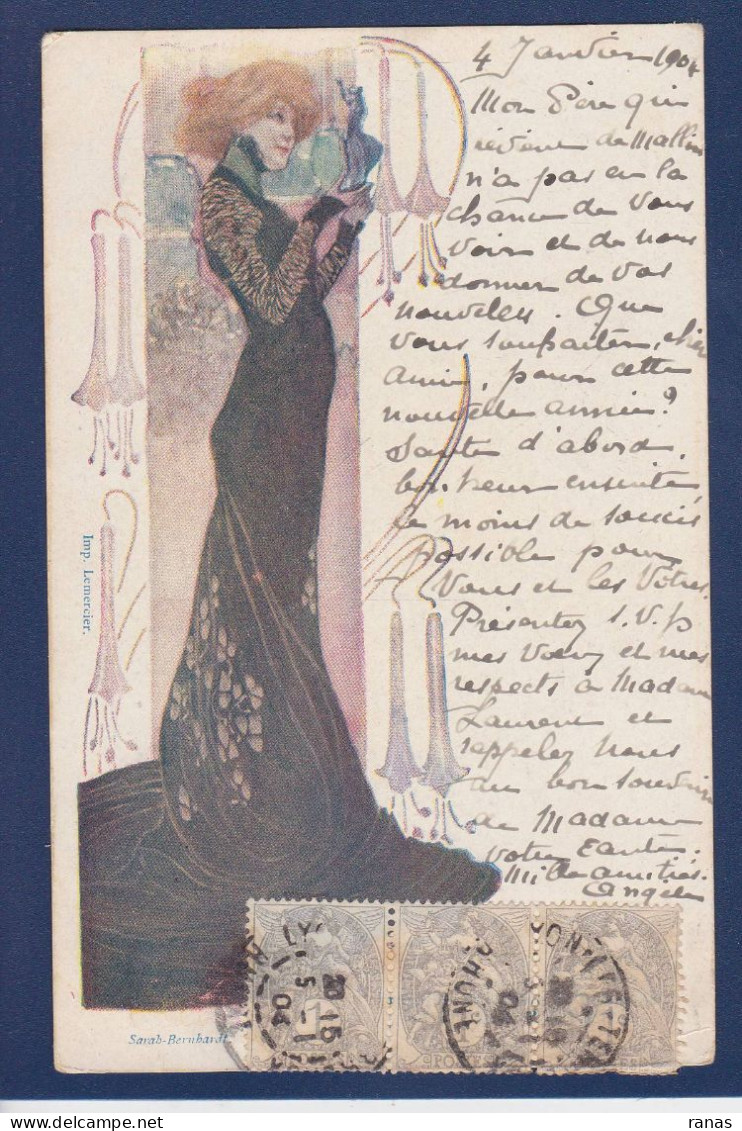 4 Janvier 1904
Mon Père qui
revient de
n'a pas eu la
chance de vous
voir et de nous
donner de vos
nouvelles. Que
vous souhaiter, cher
ami, pour cette
nouvelle année?
Santé d'abord,
bonheur ensuite
le moins de soucis
possible pour
Vous et les Vôtres.
Présentez S.V.p
mes voeux et mes
respects à Madame
Laurent et
rappelez nous
au bon souvenir
de Madame
votre Tante.
Mille amitiés.
Angèle
Imp. Lemercier.
Sarah-Bernhardt
LYON
5-1
04
RHONE
POSTES